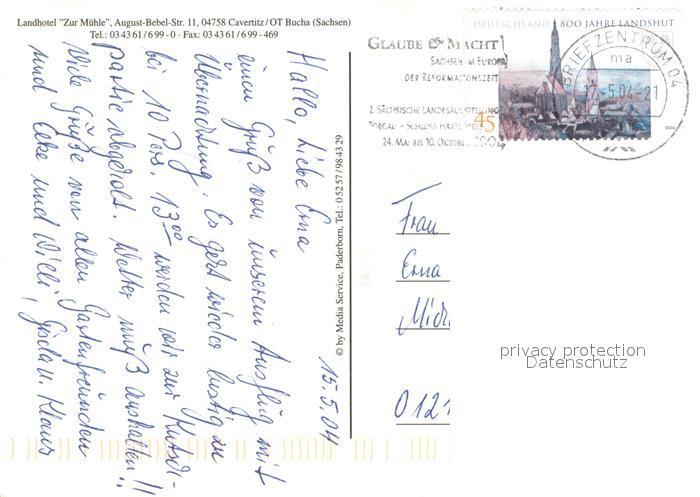 Landhotel "Zur Mühle", August-Bebel-Str. 11, 04758 Cavertitz/OT Bucha (Sachsen)
Tel.: 03 43 61 / 6 99 - 0 · Fax: 03 43 61 / 6 99 - 469
15.5.04
Hallo, liebe Erna
einen Gruß von unserem Ausflug mit
Übernachtung. Es geht wieder lustig zu
bei 10 Pers. 13⁰⁰ werden wir zur Kutsch-
partie abgeholt. Wetter muß aushalten!!
Viele Grüße von allen Gartenfreunden
und Eike und Willi, Gisela u. Klaus
© by Media Service, Paderborn, Tel.: 0 52 57 / 98 43 29
GLAUBE & MACHT
SACHSEN IM EUROPA
DER REFORMATIONSZEIT
2. SÄCHSISCHE LANDESAUSSTELLUNG
TORGAU - SCHLOSS HARTENFELS
24. MAI BIS 10. OKTOBER 2004
DEUTSCHLAND 800 JAHRE LANDSHUT
45
2004
BRIEFZENTRUM 04
ma
17.-5.04-21
Frau
Erna
Mich
012
privacy protection
Datenschutz